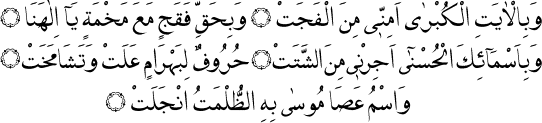 وَبِالْاٰيَتِ الْكُبْرٰى اَمِنِّى مِنَ الْفَجَتْ ۞ وَبِحَقِّ فَقَجٍ مَعَ مَخْمَةٍ يَآ اِلٰهَنَا ۞
وَبِاَسْمَآئِكَ الْحُسْنٰى اَجِرْنِى مِنَ الشَّتَتْ ۞ حُرُوفٌ لِبَهْرَامٍ عَلَتْ وَتَشَامَخَتْ ۞
وَاسْمُ عَصَا مُوسٰى بِهِ الظُّلْمَتُ انْجَلَتْ ۞